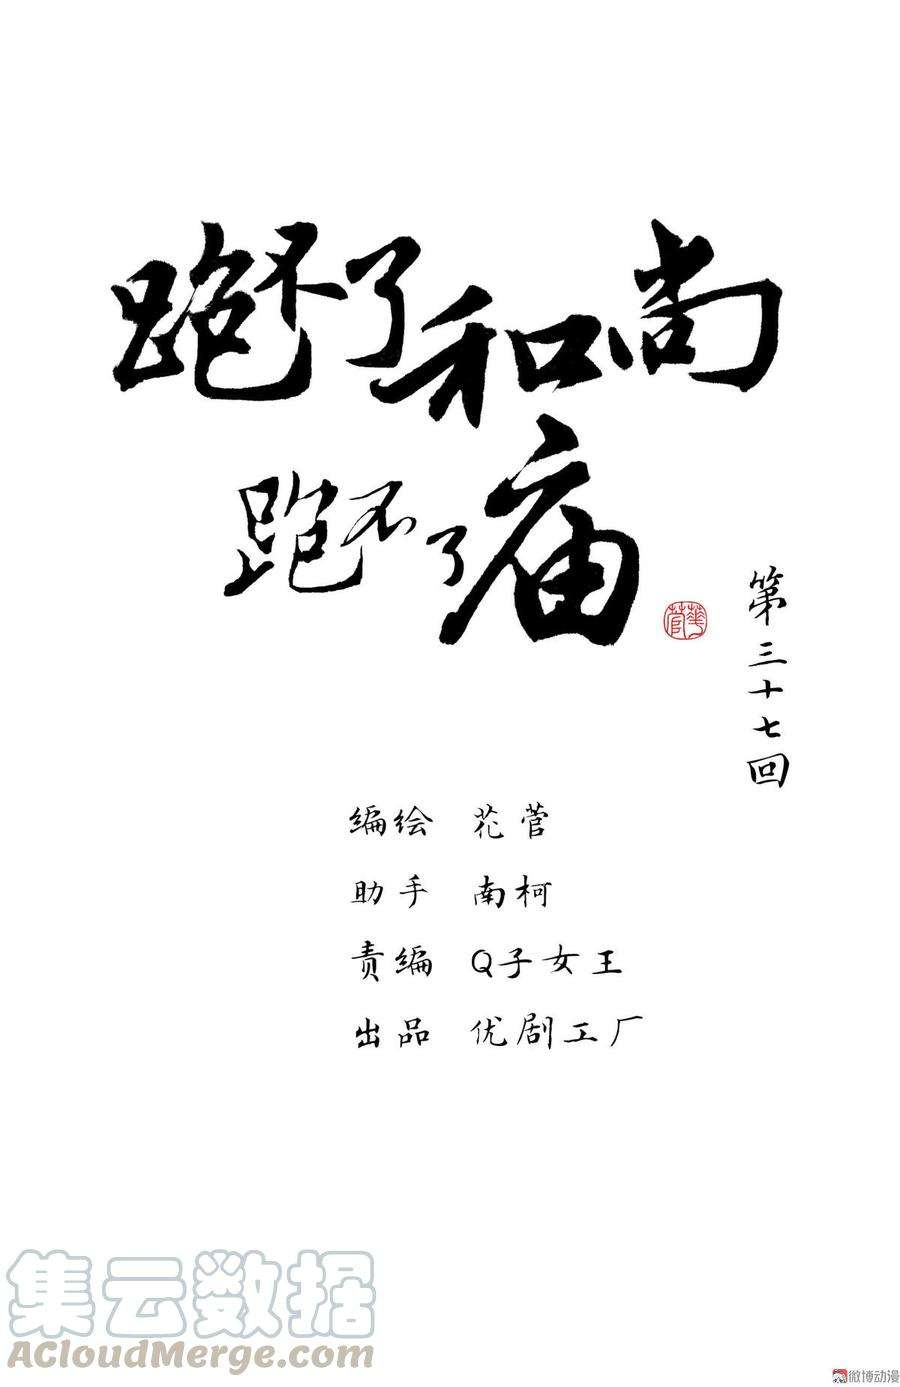 跑不了和尚
跑不了庙
華菅
第三十七回
编绘 花菅
助手 南柯
责编 Q子女王
出品 优剧工厂
集云数据
ACloudMerge.com
微博动漫